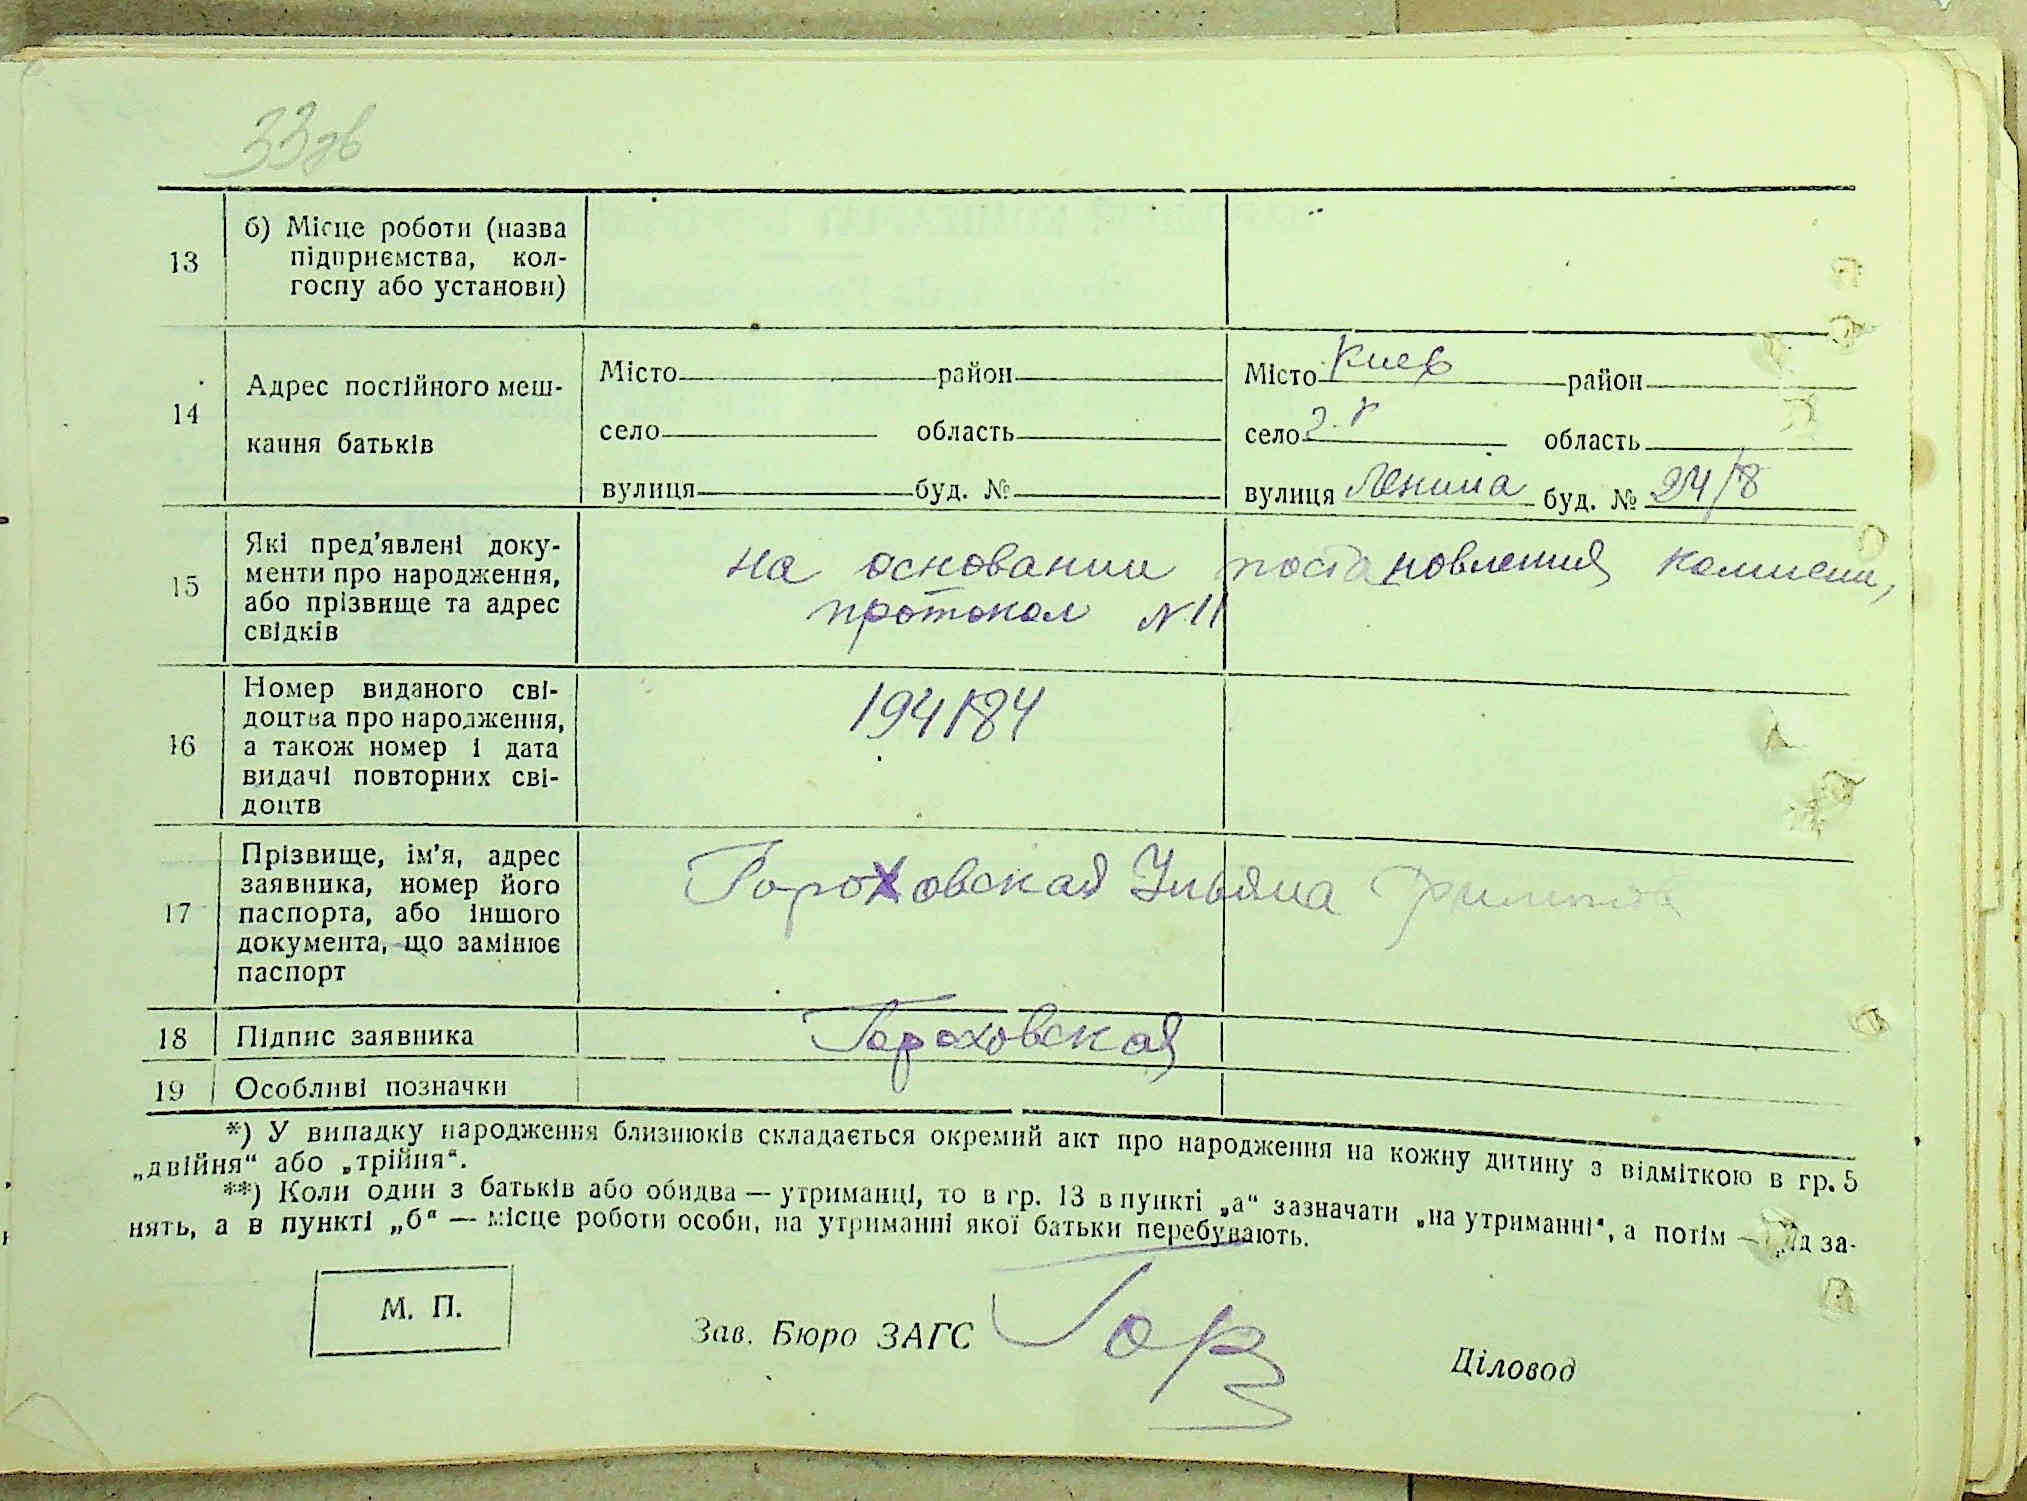 33зв
13
б) Місце роботи (назва
підприємства, кол-
госпу або установи)
14
Адрес постійного меш-
кання батьків
Місто район
село область
вулиця буд. №
Місто Киев район
село область
вулиця Ленина буд. № 24/8
15
Які пред’явлені доку-
менти про народження,
або прізвище та адрес
свідків
на основании постановления комиссии,
протокол N 11
16
Номер виданого сві-
доцтва про народження,
а також номер і дата
видачі повторних сві-
доцтв
194184
17
Прізвище, ім’я, адрес
заявника, номер його
паспорта, або іншого
документа, що замінює
паспорт
Гороховская Ульяна
18
Підпис заявника
Гороховская
19
Особливі позначки
*) У випадку народження близнюків складається окремий акт про народження на кожну дитину з відміткою в гр. 5
„двійня“ або „трійня“.
**) Коли один з батьків або обидва — утриманці, то в гр. 13 в пункті „а“ зазначати „на утриманні“, а потім — за-
нять, а в пункті „б“ — місце роботи особи, на утриманні якої батьки перебувають.
М. П.
Зав. Бюро ЗАГС Гор
Діловод